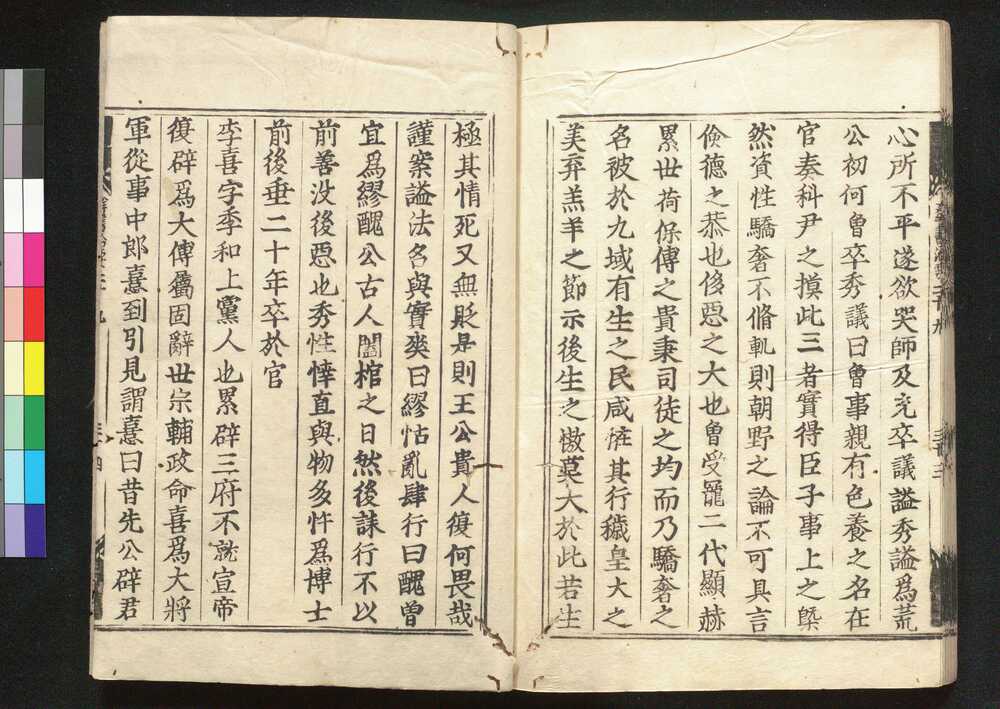 心所不平遂欲哭師及充卒議謚秀謚爲荒
公初何曽卒秀議曰曽事親有色養之名在
官奏科尹之摸此三者實得臣子事上之槩
然資性驕奢不脩軌則朝野之論不可具言
儉德之恭也侈惡之大也曽受寵二代顯赫
累世荷保傅之貴秉司徒之均而乃驕奢之
名被於九域有生之民咸恠其行穢皇大之
美弃羔羊之節示後生之慠莫大於此若生
極其情死又無貶是則王公貴人復何畏哉
謹案謚法名與實爽曰繆怙亂肆行曰醜曽
宜爲繆醜公古人闔棺之日然後誄行不以
前善没後惡也秀性悻直與物多忤爲博士
前後垂二十年卒於官
李喜字季和上黨人也累辟三府不就宣帝
復辟爲大傅屬固辭世宗輔政命喜爲大將
軍從事中郎憙到引見謂憙曰昔先公辟君